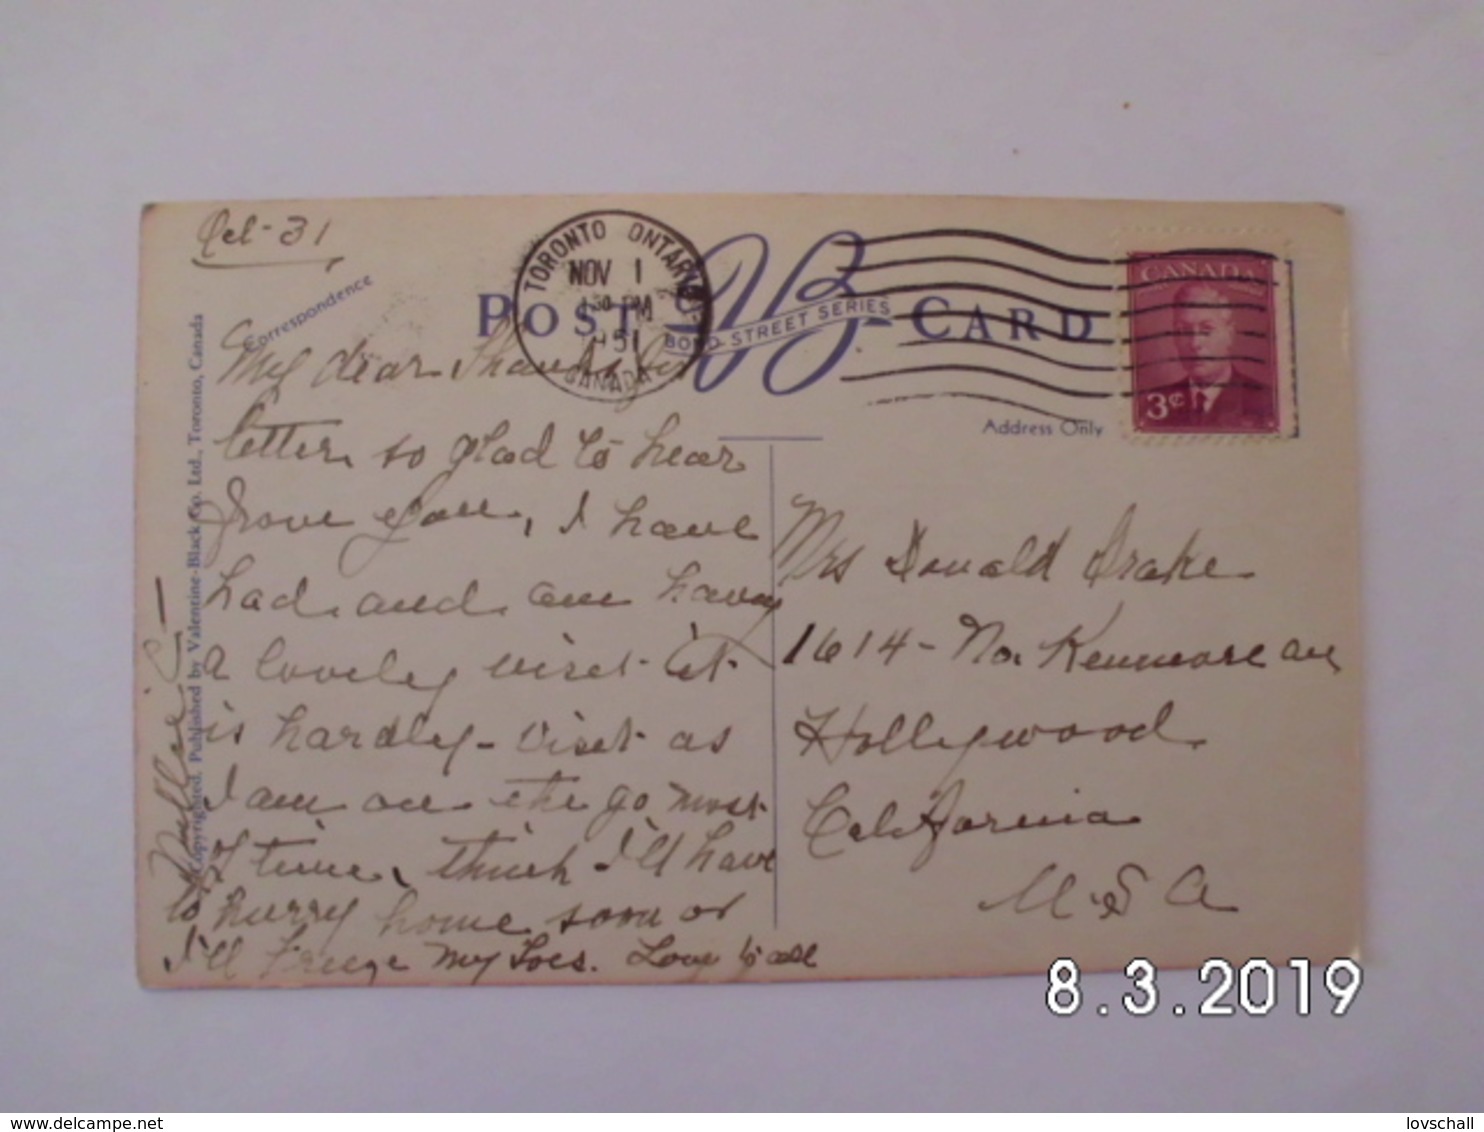 Oct - 31
Correspondence
POST CARD
BOND STREET SERIES
TORONTO ONTARIO
NOV 1
1 30 PM
1951
CANADA
CANADA
3¢
Address Only
My dear Thanks for
letter so glad to hear
from you, I have
had and am having
a lovely visit it
is hardly - visit as
I am on the go most
of time, think I'll have
to hurry home soon or
I'll freeze my toes. Love to all
Copyrighted. Published by Valentine-Black Co. Ltd., Toronto, Canada
Mrs Donald Drake
1614 - No. Kenmore av
Hollywood
California
U.S A
8.3.2019
delcampe.net
lovschall